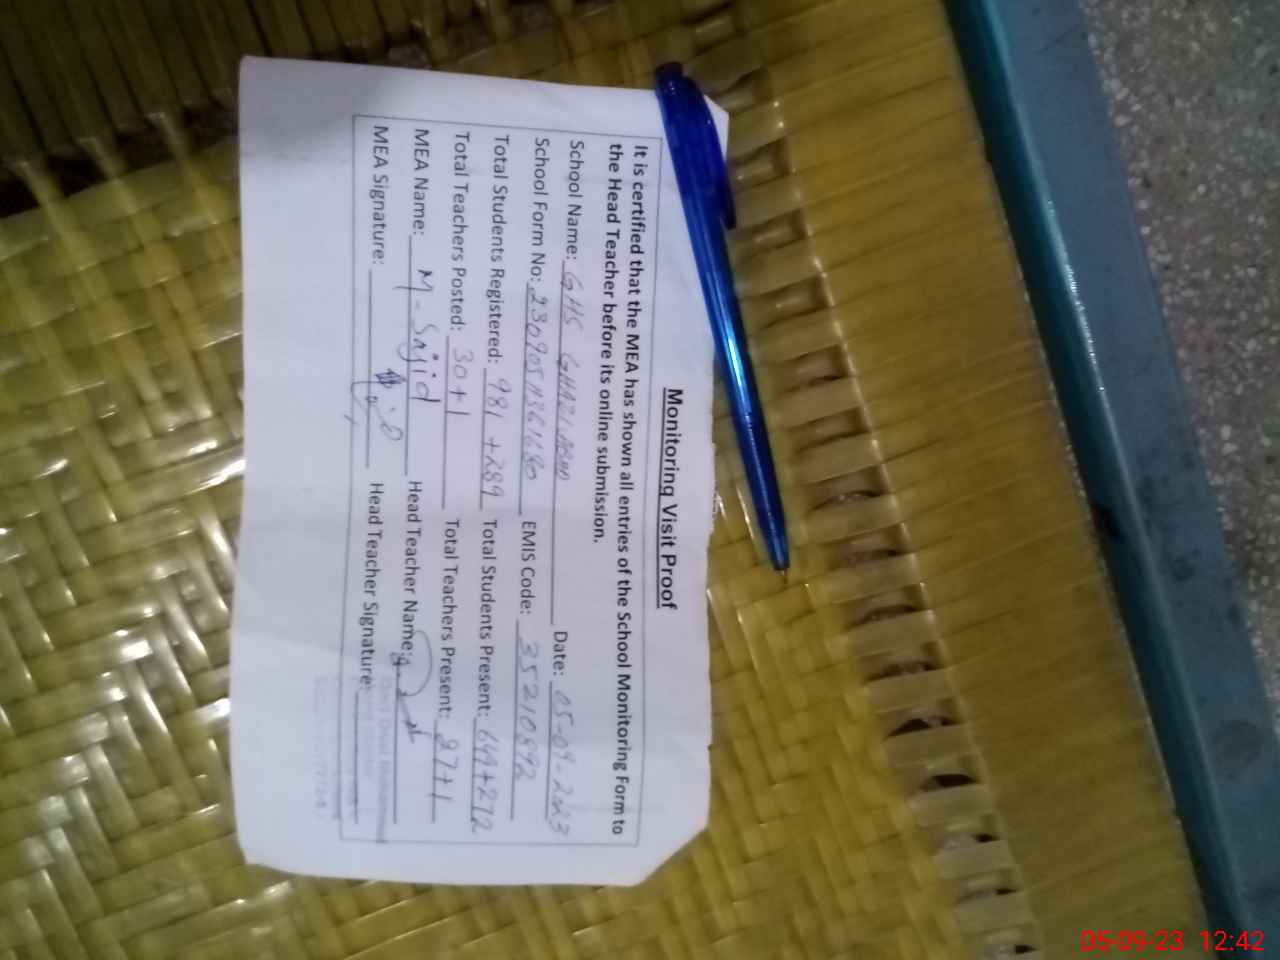 Monitoring Visit Proof
It is certified that the MEA has shown all entries of the School Monitoring Form to
the Head Teacher before its online submission.
School Name: GHS GHAZIABAD Date: 05-09-2023
School Form No: EMIS Code: 35210892
Total Students Registered: 981 +289 Total Students Present: 644+272
Total Teachers Posted: 30+1 Total Teachers Present: 27+1
MEA Name: M-Sajid Head Teacher Name:
MEA Signature: Head Teacher Signature:
05-09-23 12:42